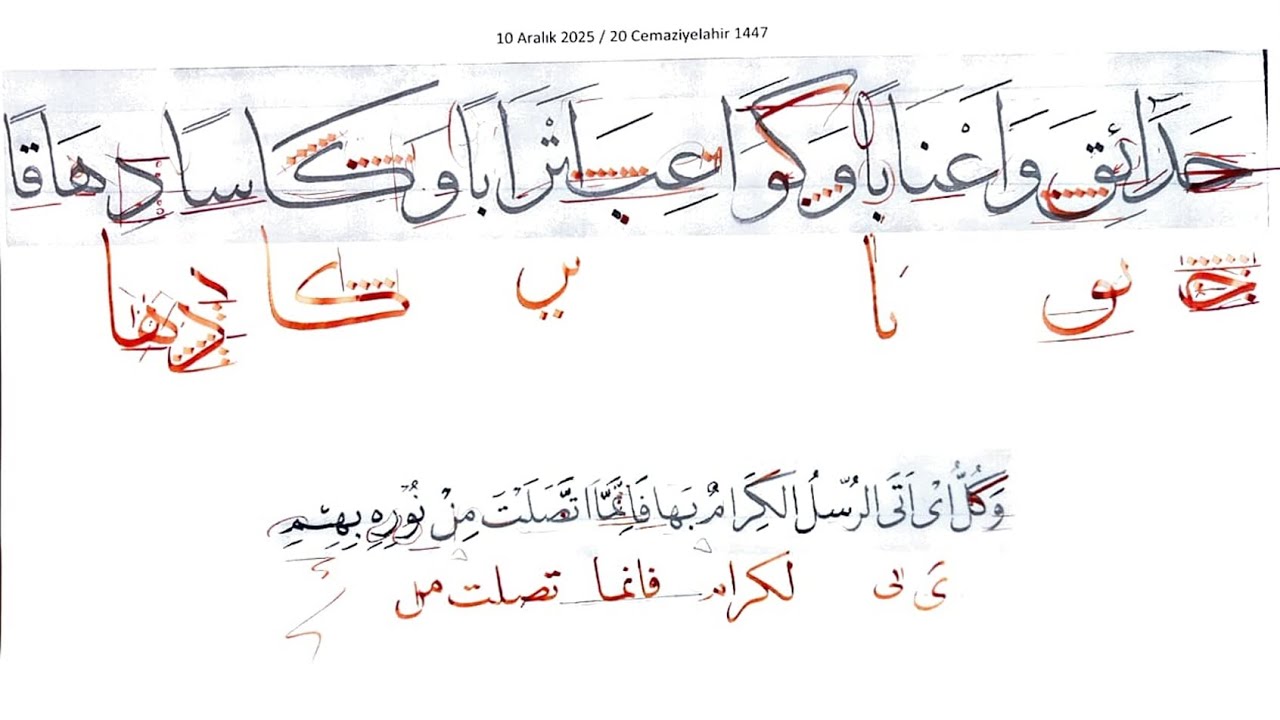 10 Aralık 2025 / 20 Cemaziyelahir 1447
حَدَائِقَ وَاَعْنَابًا وَكَوَاعِبَ اَتْرَابًا وَكَاسًا دِهَاقًا
حد ئق با تر كا دها
وَكُلُّ اٰىٍ اَتَى الرُّسْلُ الْكِرَامُ بِهَا فَاِنَّمَا اتَّصَلَتْ مِنْ نُورِهِ بِهِمِ
ى تى لكرام فانما تصلت من